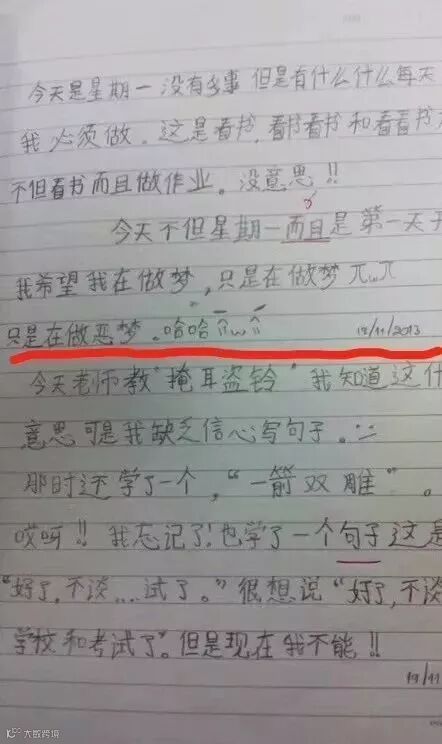 今天是星期一没有多事 但是有什么什么每天
我 必须做 . 这是看书, 看书看书 和看看书
不但看书而且做作业。没意思!!
今天不但星期一而且是第一天
我希望我在做梦, 只是在做梦 π_wπ
只是在做恶梦 。哈哈 ^w^ 18/11/2013
今天老师教"掩耳盗铃" 我知道这什
意思可是我缺乏信心写句子。
那时还学了一个, "一箭双雕" 。
哎呀!! 我忘记了! 也学了一个句子 这是
"好了, 不谈...试了。" 很想说 "好了, 不谈
学校和考试了"。但是现在我不能!!
19/11
大数跨境